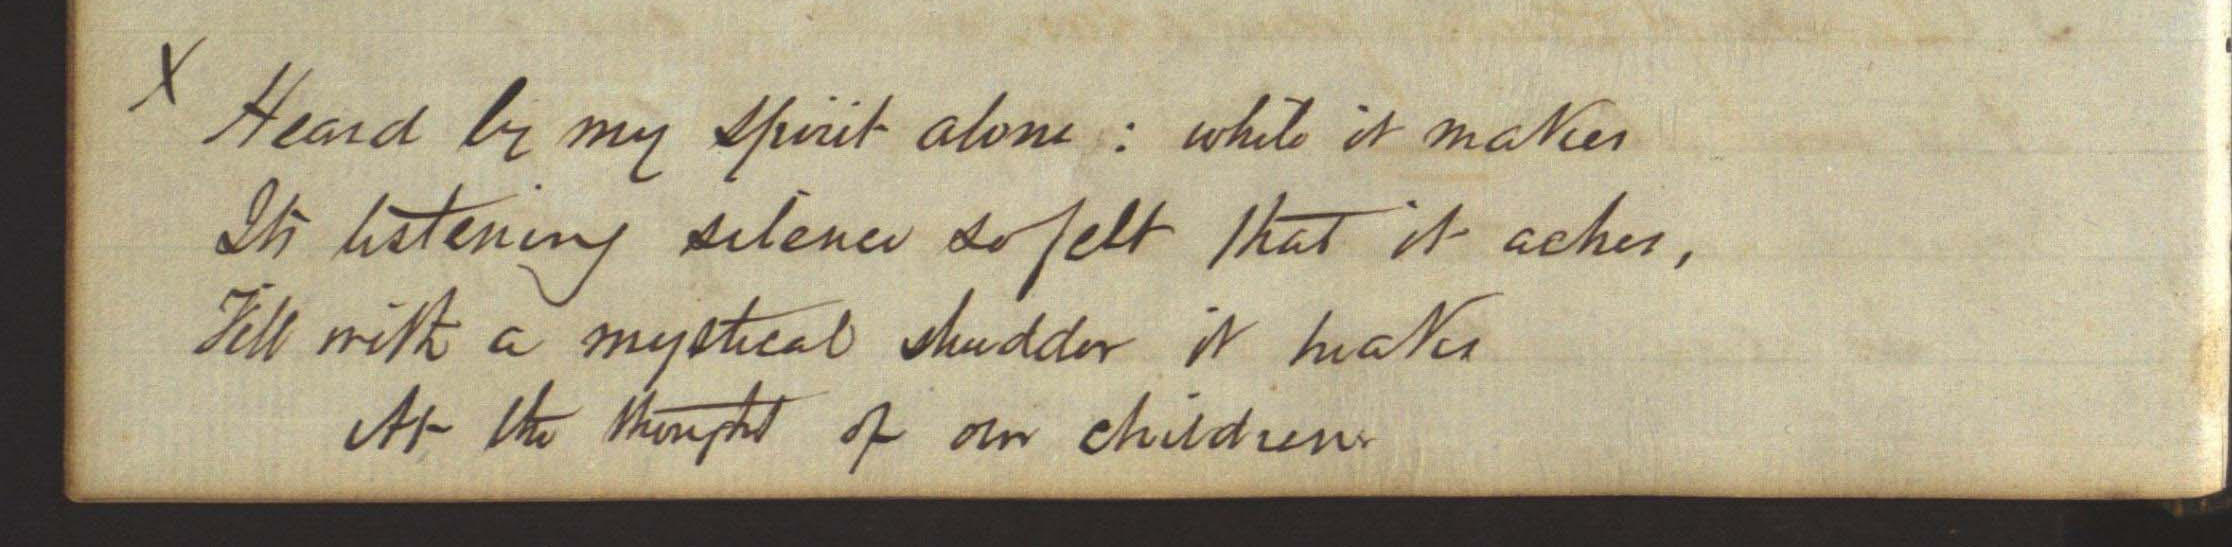 X Heard by my spirit alone : while it makes
Its listening silence so felt that it aches,
Till with a mystical shudder it breaks
At the thought of our children